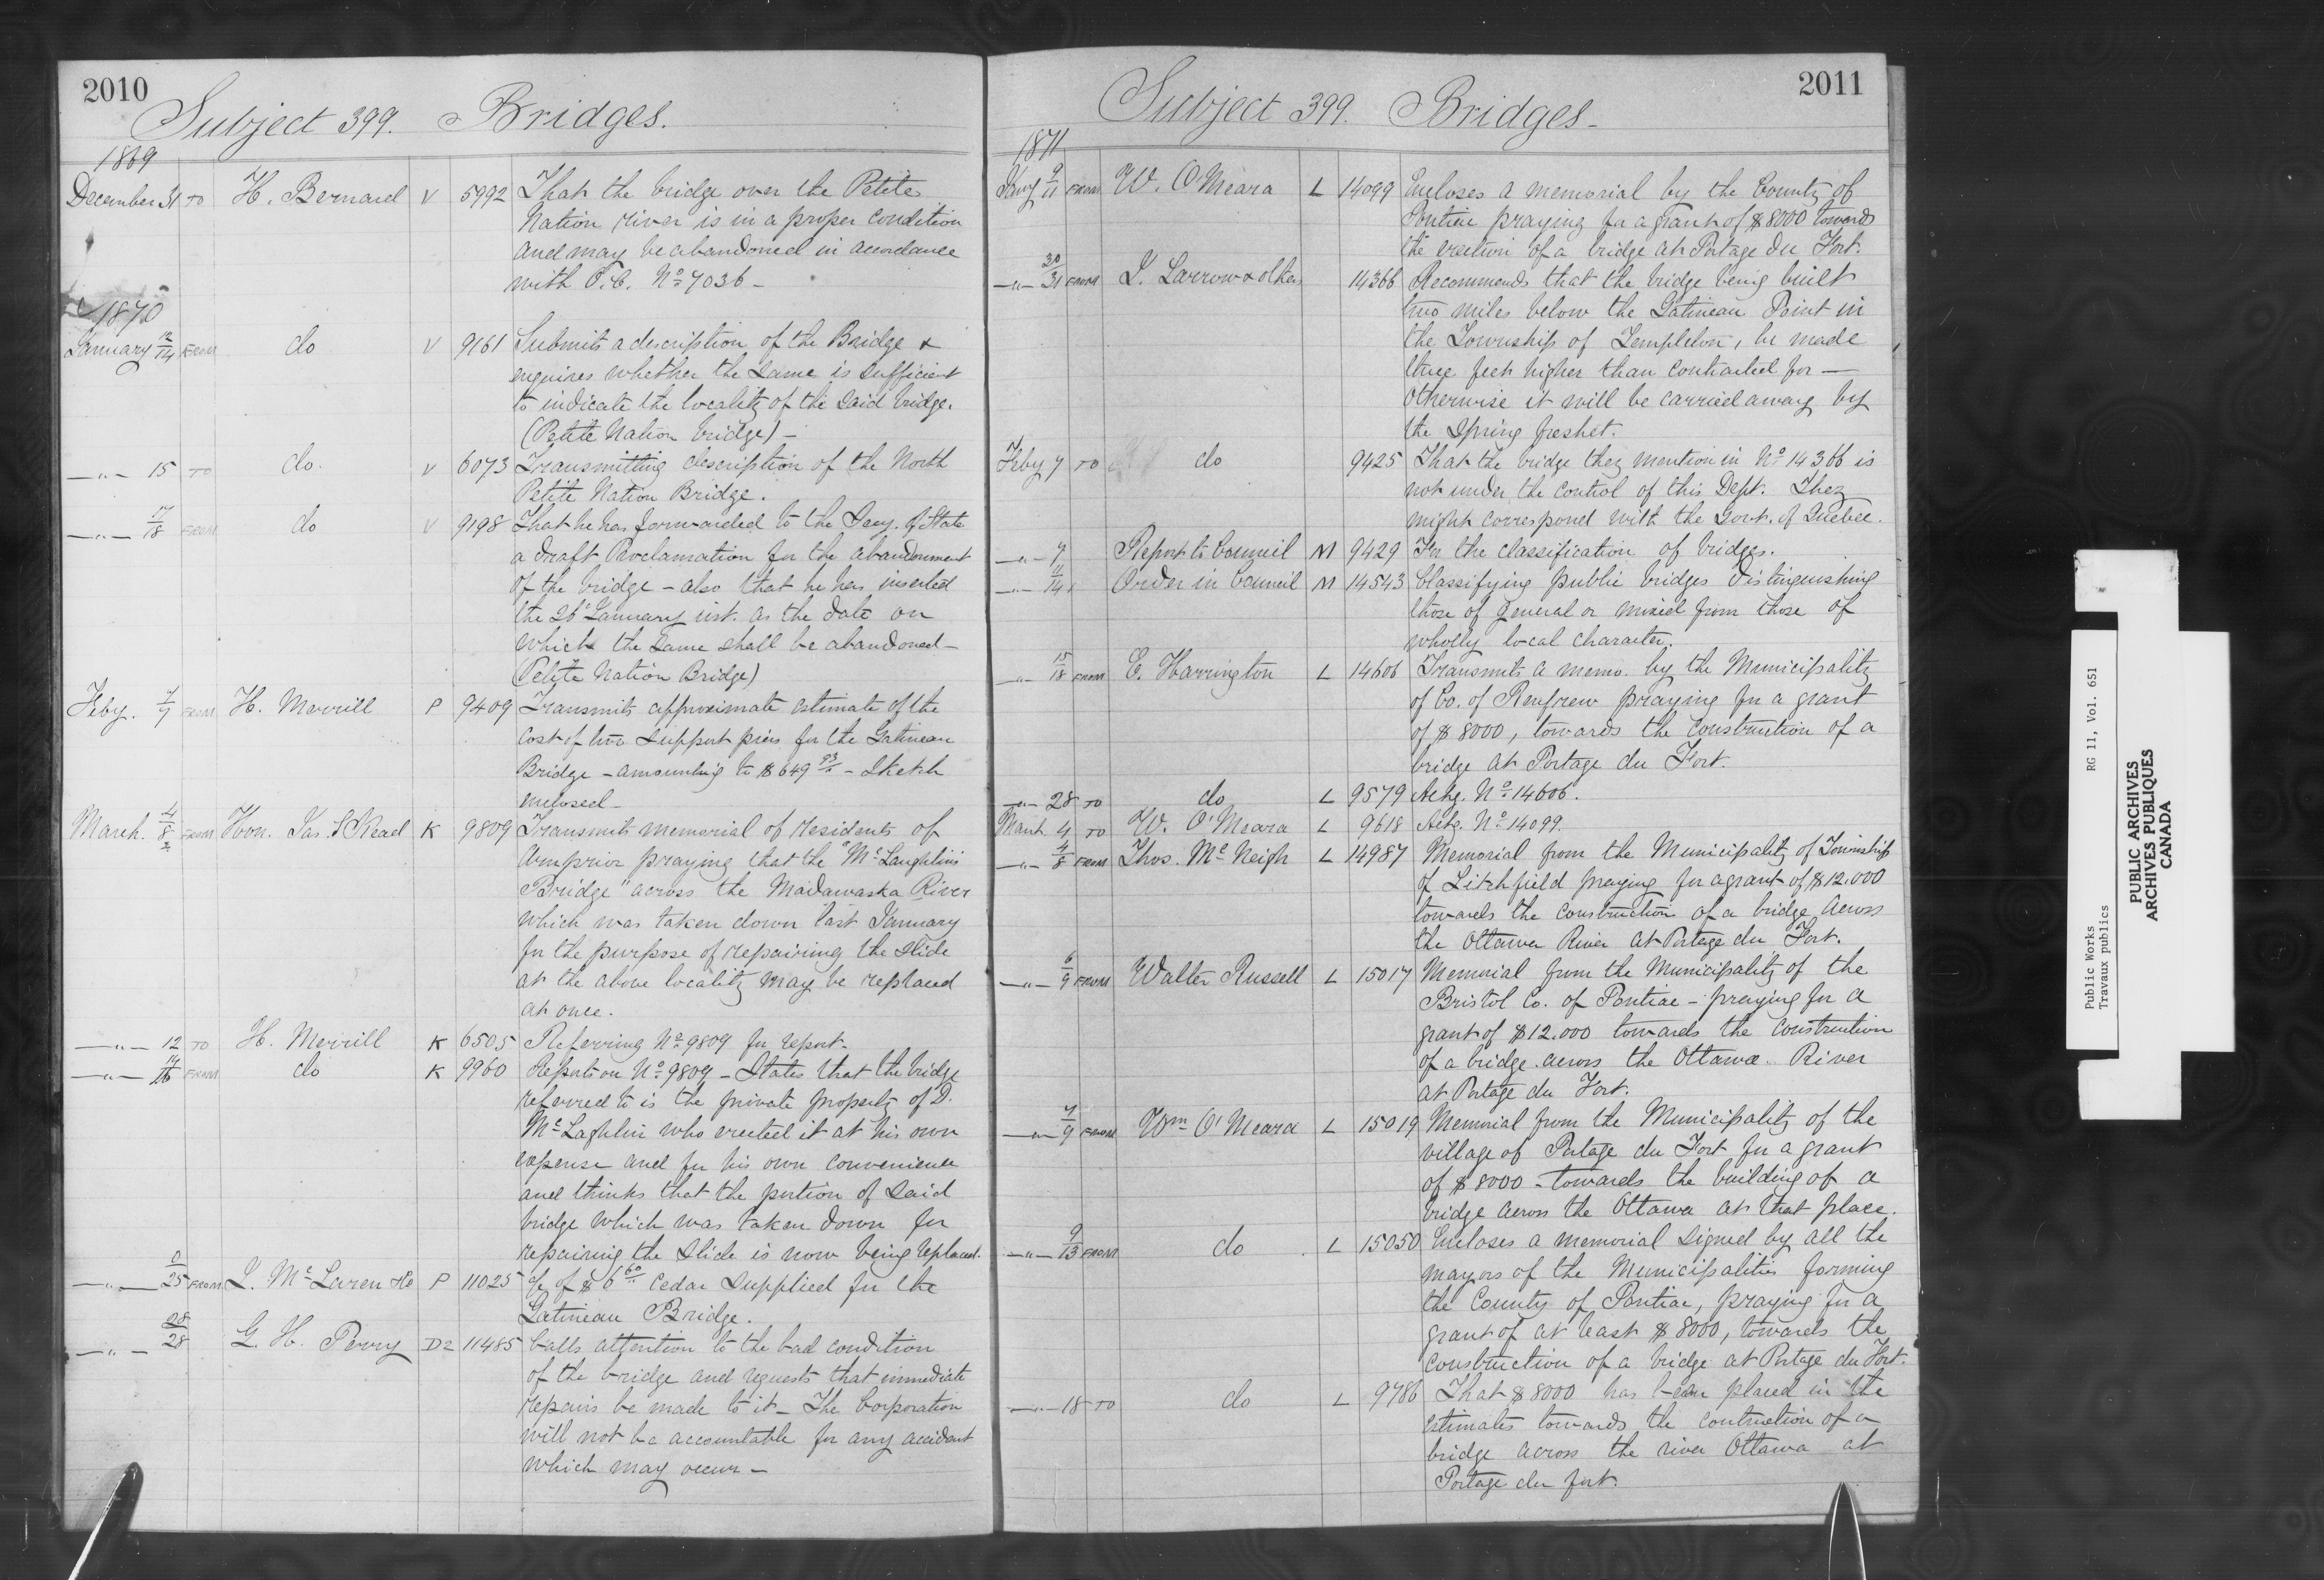 2010
Subject 399. Bridges.
1869
December 31 TO H. Bernard V 5992 That the bridge over the Petite
Nation river is in a proper condition
and may be abandoned in accordance
with O.C. No 7036 -
1870
January 12/14 FROM do V 9161 Submits a description of the Bridge &
enquires whether the same is sufficient
to indicate the locality of the said bridge.
(Petite Nation bridge) -
-"- 15 TO do. V 6073 Transmitting description of the North
Petite Nation Bridge.
-"- 17/18 FROM do V 9198 That he has forwarded to the Secy. of State
a draft Proclamation for the abandonment
of the bridge - also that he has inserted
the 26 January inst. as the date on
which the same shall be abandoned -
(Petite Nation Bridge)
Feby. 7/7 FROM H. Merrill P 9409 Transmits approximate estimate of the
cost of two support piers for the Gatineau
Bridge - amounting to $649 93 - Sketch
enclosed -
March. 4/8 FROM Hon. Jas. Skead K 9809 Transmits memorial of residents of
Arnprior praying that the "McLaughlin's
Bridge" across the Madawaska River
which was taken down last January
for the purpose of repairing the slide
at the above locality may be replaced
at once.
-"- 12 TO H. Merrill K 6505 Referring No 9809 for report -
-"- 14/16 FROM do K 9960 Reports on No 9809 - States that the bridge
referred to is the private property of D.
McLaghlin who erected it at his own
expense and for his own convenience
and thinks that the portion of said
bridge which was taken down for
repairing the slide is now being replaced.
-"- 25 FROM J. McLaren & Co P 11025 % of $6 60 Cedar supplied for the
Gatineau Bridge.
-"- 28/28 G. H. Perry D2 11485 Calls attention to the bad condition
of the bridge and requests that immediate
repairs be made to it - The Corporation
will not be accountable for any accident
which may occur -
2011
Subject 399. Bridges -
1871
Jany 9/11 FROM W. O'Meara L 14099 Encloses a memorial by the County of
Pontiac praying for a grant of $8000 towards
the erection of a bridge at Portage du Fort.
-"- 30/31 FROM J. Larrow & others 14366 Recommends that the bridge being built
two miles below the Gatineau Point in
the Township of Templeton, be made
three feet higher than contracted for -
otherwise it will be carried away by
the Spring freshet.
Feby 7 TO do 9425 That the bridge they mention in No 14366 is
not under the control of this Dept. They
might correspond with the Govt. of Quebec.
-"- 7 Report to Council M 9429 For the classification of bridges.
-"- 11/14 Order in Council M 14543 Classifying public bridges distinguishing
those of general or mixed from those of
wholly local character.
-"- 15/18 FROM E. Harrington L 14606 Transmits a memo. by the Municipality
of Co. of Renfrew praying for a grant
of $8000, towards the construction of a
bridge at Portage du Fort.
-"- 28 TO do L 9579 Ackg. No 14606.
March 4 TO W. O'Meara L 9618 Ackg. No 14099.
-"- 4/8 FROM Thos. McNeigh L 14987 Memorial from the Municipality of Township
of Litchfield praying for a grant of $12.000
towards the construction of a bridge across
the Ottawa River at Portage du Fort.
-"- 6/9 FROM Walter Russell L 15017 Memorial from the Municipality of the
Bristol Co. of Pontiac - praying for a
grant of $12.000 towards the construction
of a bridge across the Ottawa River
at Portage du Fort.
-"- 7/9 FROM Wm O'Meara L 15019 Memorial from the Municipality of the
village of Portage du Fort for a grant
of $8000 - towards the building of a
bridge across the Ottawa at that place.
-"- 9/13 FROM do L 15050 Encloses a memorial signed by all the
mayors of the Municipalities forming
the County of Pontiac, praying for a
grant of at least $8000, towards the
construction of a bridge at Portage du Fort.
-"- 18 TO do L 9786 That $8000 has been placed in the
estimates towards the contruction of a
bridge across the river Ottawa at
Portage du fort.
Public Works RG 11, Vol. 651
Travaux publics
PUBLIC ARCHIVES
ARCHIVES PUBLIQUES
CANADA